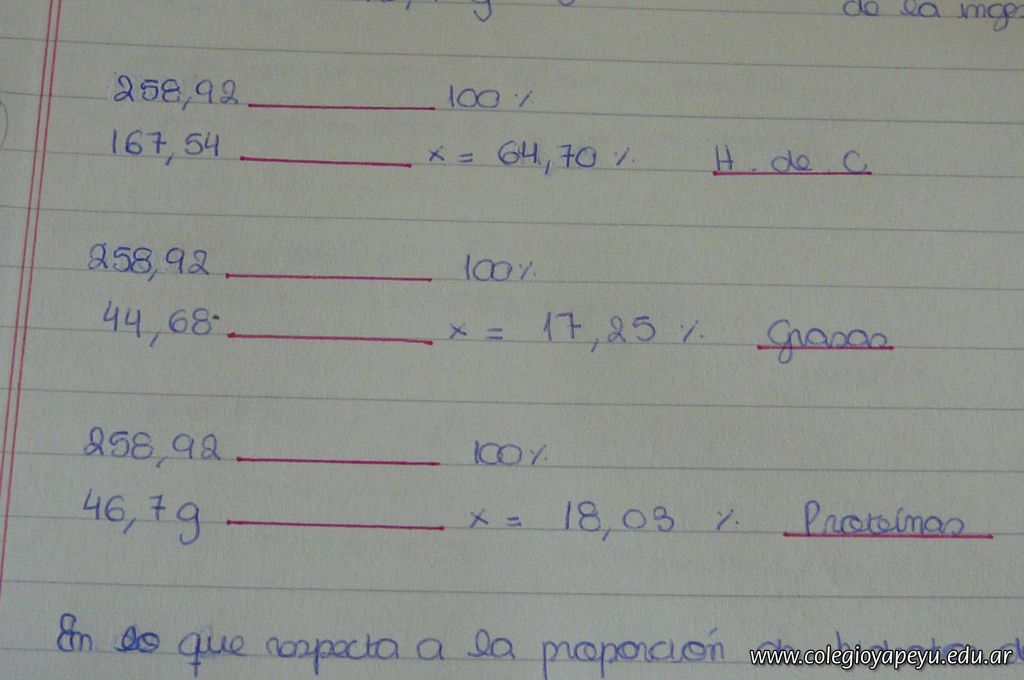 de la inge
258,92 ______ 100 %
167,54 ______ x = 64,70 % H. de C
258,92 ______ 100%
44,68 ______ x = 17,25 % Grasas
258,92 ______ 100%
46,7g ______ x = 18,03 % Proteínas
En lo que respecta a la proporción
www.colegioyapeyu.edu.ar